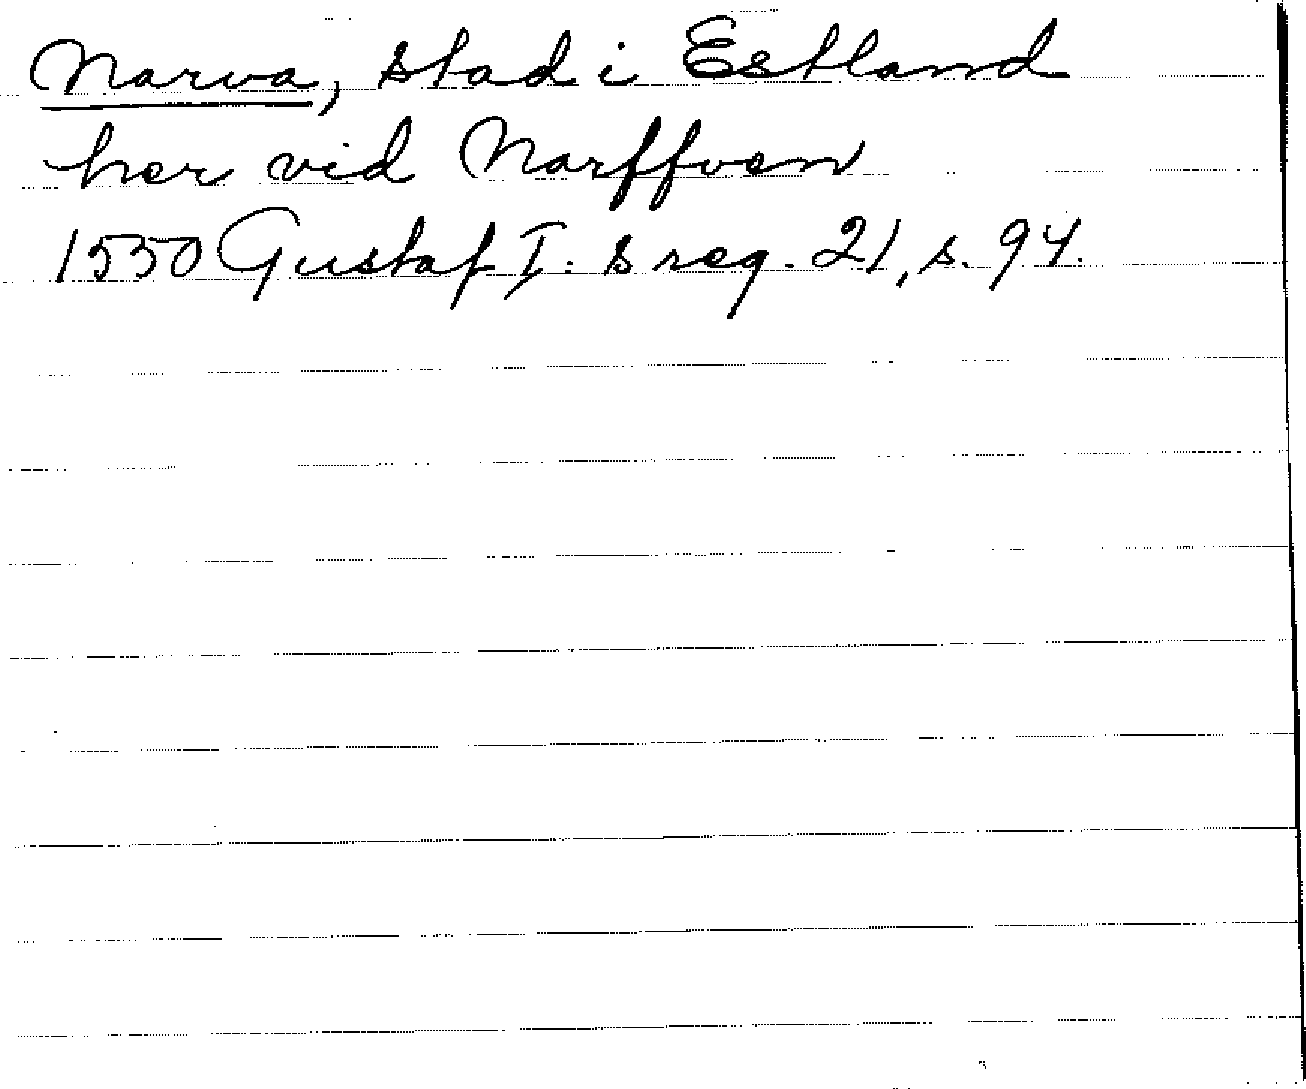 Narva, stad i Estland
her vid Narffven
1550 Gustaf I: s reg. 21, s. 94.